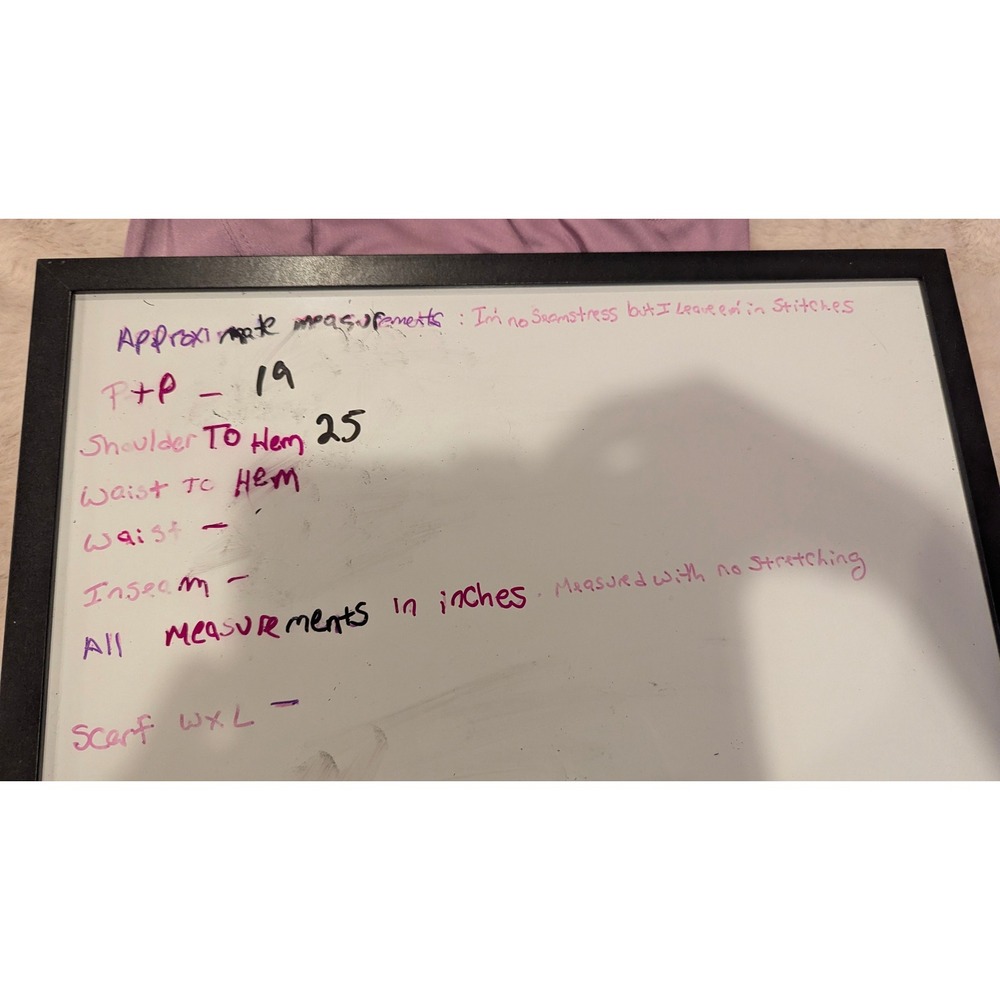 Approximate measurements : I'm no Seamstress but I Leave em in Stitches
P+P – 19
Shoulder To Hem 25
Waist To Hem
Waist –
Inseam –
All measurements in inches. Measured with no stretching
Scarf WxL –